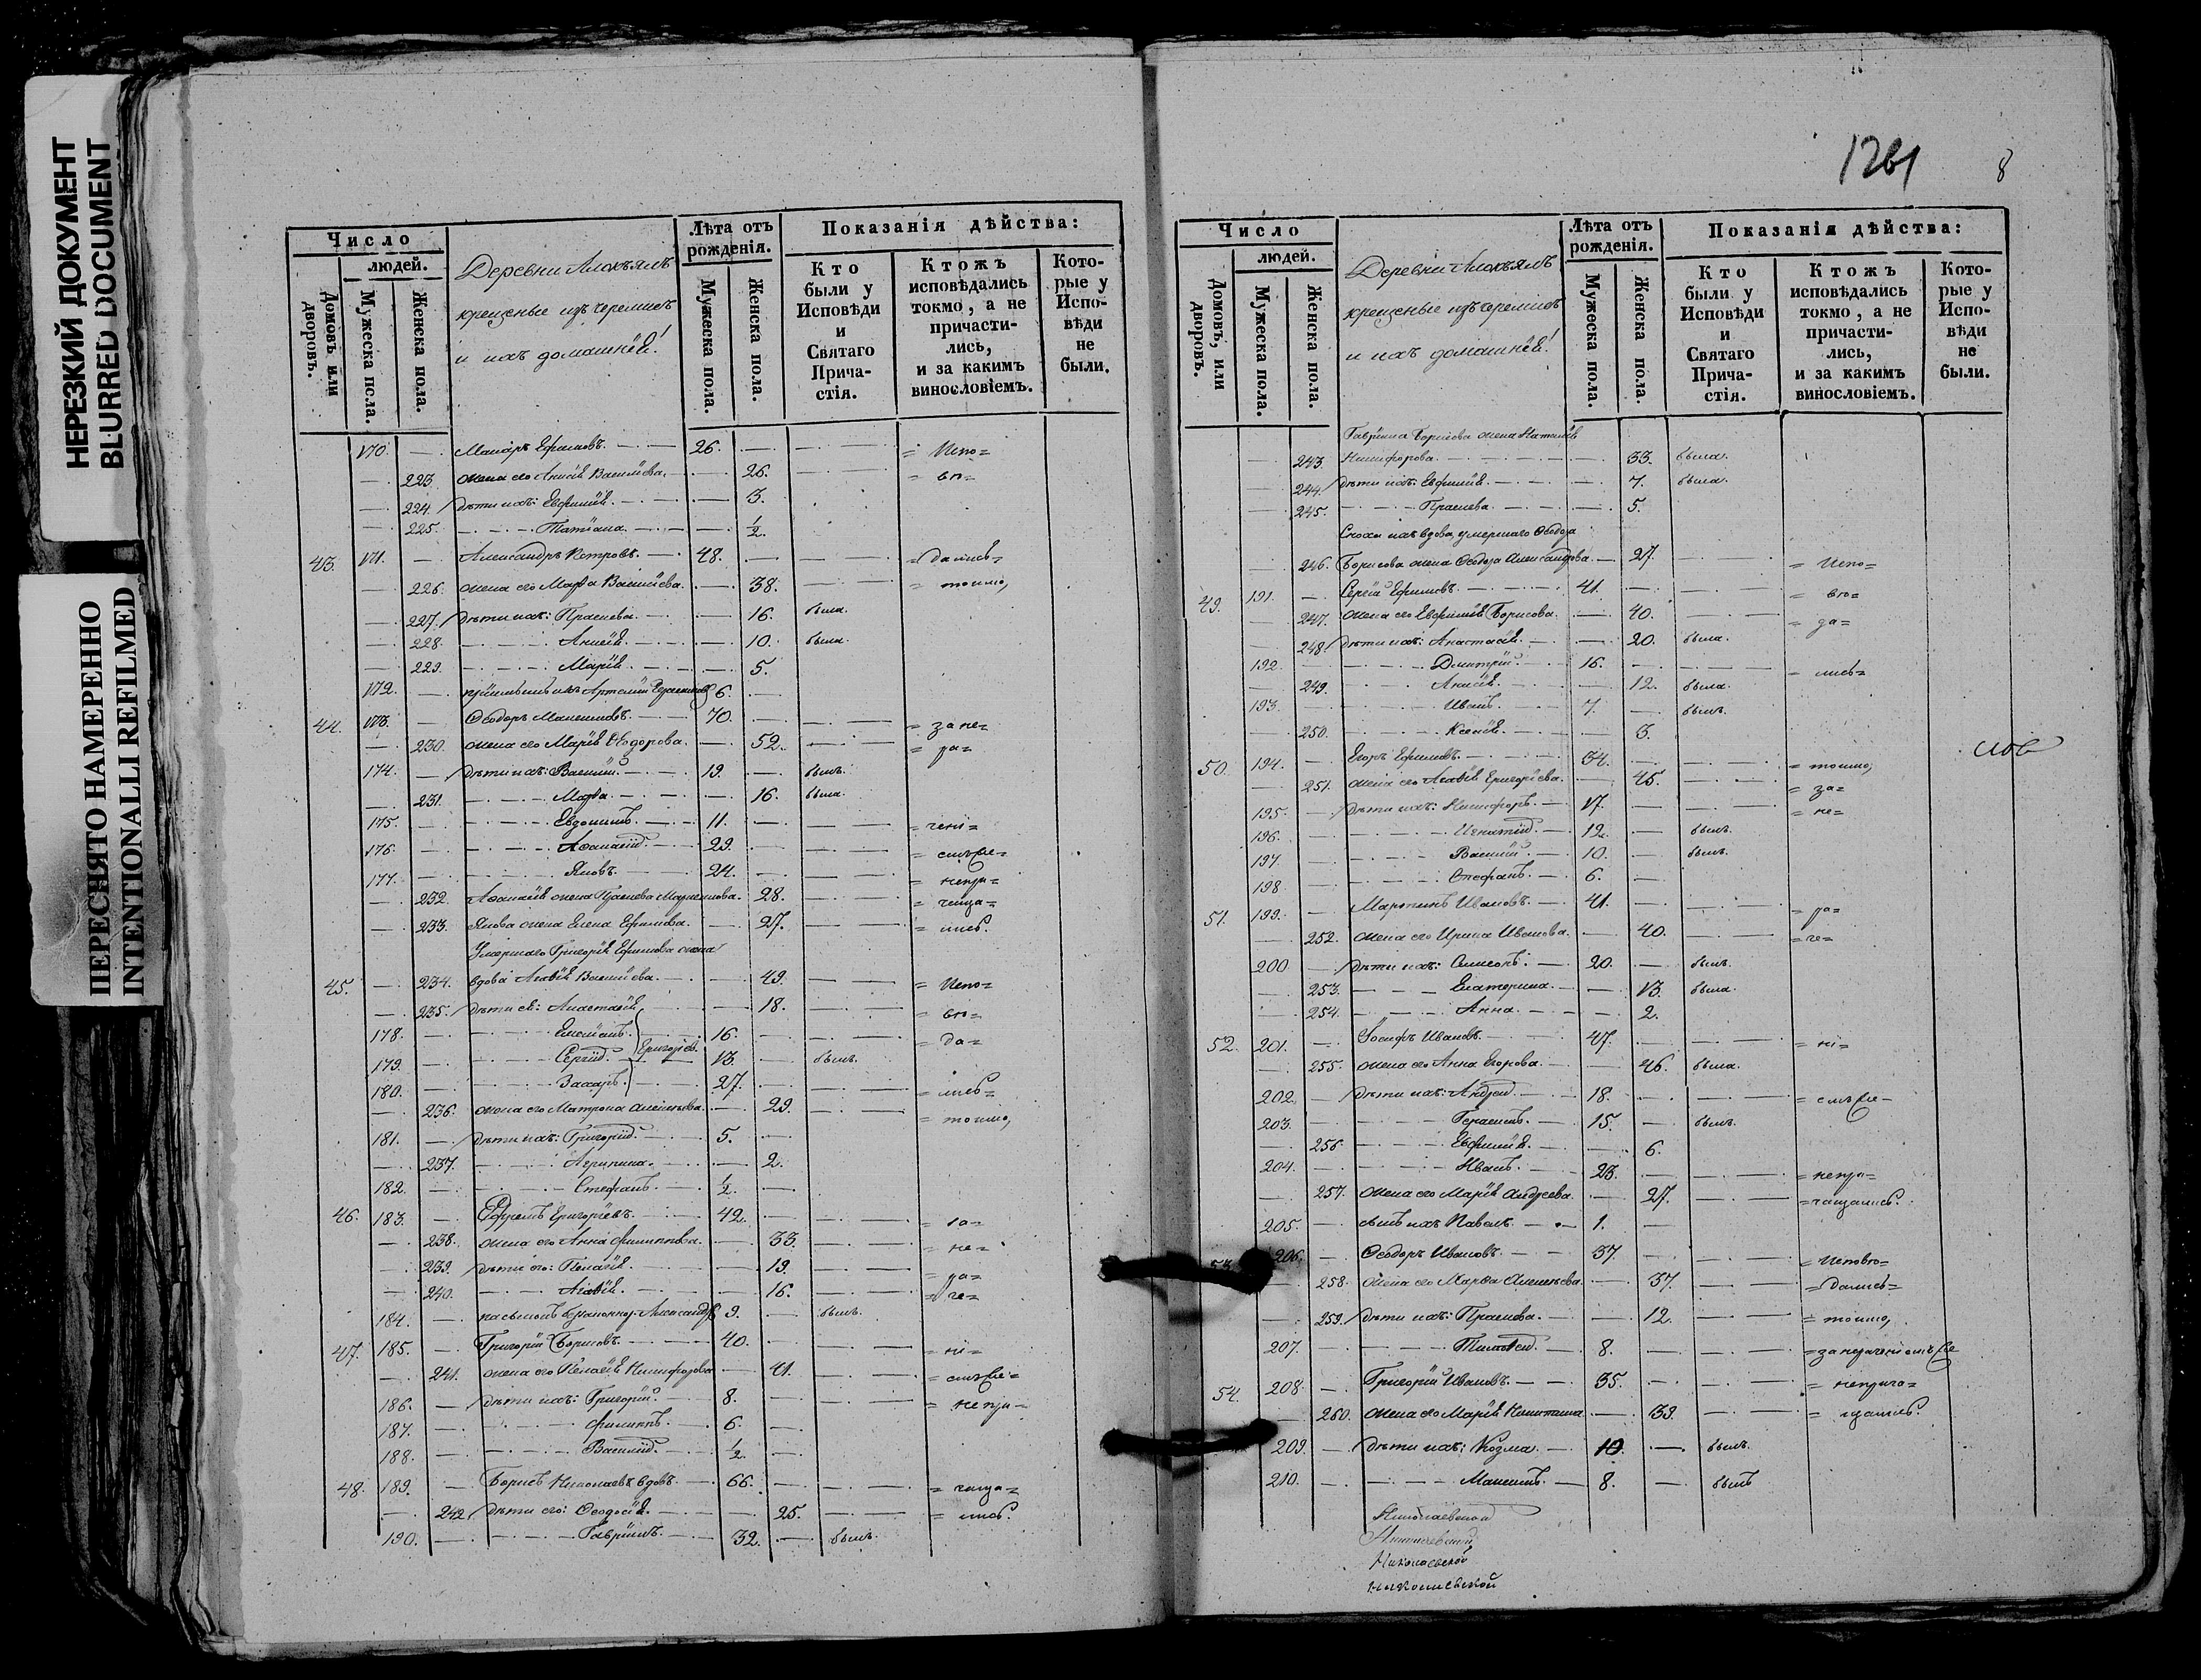 НЕРЕЗКИЙ ДОКУМЕНТ
BLURRED DOCUMENT
ПЕРЕСНЯТО НАМЕРЕННО
INTENTIONALLI REFILMED
Число
людей.
Домовъ или дворовъ.
Мужеска пола.
Женска пола.
Деревни
крещеные изъ черемисъ
и ихъ домашніе!
Лѣта отъ рожденія.
Мужеска пола.
Женска пола.
Показанія дѣйства:
Кто были у Исповѣди и Святаго Причастія.
Ктожъ исповѣдались токмо, а не причастились, и за какимъ винословіемъ.
Которые у Исповѣди не были.
170. — Ефимовъ. — 26. — — = Испо=
— 223. жена его Анисія Васильева. — 26. — = вѣ=
— 224. дѣти ихъ: Евфимія. — 3.
— 225. — Татіана. — ½.
43. 171. — Александръ Петровъ. — 48. — — = дались=
— 226. жена его Марѳа Васильева. — 38. — = токмо,
— 227. дѣти ихъ: Праскева. — 16. была.
— 228. — Анисія. — 10. была.
— 229. — Марія. — 5.
172. — Артемій 6. —
44. 173. — Ѳеодоръ Максимовъ. — 70. — — = за не=
— 230. жена его Марія Ѳеодорова. — 52. — = ра=
174. — дѣти ихъ: Василій. — 19. — былъ.
— 231. — Марѳа. — 16. была.
175. — Евдокимъ. — 11. — — = чені=
176. — Аѳанасій. — 29. — — = емъ Св=
177. — Яковъ. — 24. — — = непри=
— 232. Аѳанасія жена Праскева — 28. — = чеща=
— 233. Якова жена Елена Ефимова. — 27. — = лись.
Умершаго Григорія Ефимова жена
45. — 234. вдова Агаѳія Васильева. — 49. — = Испо=
— 235. дѣти ея: Анастасія — 18. — = вѣ=
178. — Емеліанъ. Григорьев. 16. — — = да=
179. — Сергій. — 13. — былъ.
180. — Захаръ. — 27. — — = лись=
— 236. жена его Матрона Алексѣева. — 29. — = токмо,
181. — дѣти ихъ: Григорій. — 5. —
— 237. — Агрипина. — 2.
182. — Стефанъ. — ½. —
46. 183. — Ефремъ Григорьевъ. — 42. — — = за=
— 238. жена его Анна Филиппова. — 33. — = не=
— 239. дѣти его: Пелагія. — 19. — = ра=
— 240. — Агаѳія. — 16. — = че=
184. — Александр 9. — былъ.
47. 185. — Григорій Борисовъ. — 40. — — = ні=
— 241. жена его Пелагія Никифорова — 41. — = емъ Св=
186. — дѣти ихъ: Григорій. — 8. — — = непри=
187. — Филиппъ. — 6. —
188. — Василій. — ½. —
48. 189. — Борисъ Николаевъ вдовъ. — 66. — — = чаща=
— 242. дѣти его: Ѳеодосія. — 25. — = лись.
190. — Гавріилъ. — 32. — былъ.
1261
8
Число
людей.
Домовъ, или дворовъ.
Мужеска пола.
Женска пола.
Деревни
крещеные изъ черемисъ
и ихъ домашніе!
Лѣта отъ рожденія.
Мужеска пола.
Женска пола.
Показанія дѣйства:
Кто были у Исповѣди и Святаго Причастія.
Ктожъ исповѣдались токмо, а не причастились, и за какимъ винословіемъ.
Которые у Исповѣди не были.
Гавріила Борисова жена Наталія
— 243. Никифорова. — 33. была.
— 244. дѣти ихъ: Евфимія. — 7. была.
— 245. — Праскева. — 5.
Сноха ихъ вдова, умершаго Ѳеодора
— 246. Борисова жена Ѳеодора Александрова. — 27. — = Испо=
49. 191. — Сергій Ефимовъ. — 41. — — = вѣ=
— 247. жена его Евфимія Борисова. — 40. — = да=
— 248. дѣти ихъ: Анастасія. — 20. была.
192. — Димитрій. — 16. — — = лись=
— 249. — Анисія. — 12. была.
193. — Иванъ. — 7. — былъ.
— 250. — Ксенія. — 3.
50. 194. — Егоръ Ефимовъ. — 34. — — = токмо,
— 251. жена его Агаѳія Григорьева. — 45. — = за=
195. — дѣти ихъ: Никифоръ. — 17. — — = не=
196. — Игнатій. — 12. — былъ.
197. — Василій. — 10. — былъ.
198. — Стефанъ. — 6. —
51. 199. — Мартинъ Ивановъ. — 41. — — = ра=
— 252. жена его Ирина Иванова. — 40. — = че=
200. — дѣти ихъ: Симеонъ. — 20. — былъ.
— 253. — Екатерина. — 13. была.
— 254. — Анна. — 2.
52. 201. — Іосифъ Ивановъ. — 47. — — = ні=
— 255. жена его Анна Егорова. — 46. была.
202. — дѣти ихъ: Андрей. — 18. — — = емъ Св=
203. — Герасимъ. — 15. — былъ.
— 256. — Евфимія. — 6.
204. — Иванъ. — 23. — — = непри=
— 257. жена его Марія Андреева. — 27. — = чащались.
205. — сынъ ихъ Павелъ. — 1. —
53. 206. — Ѳеодоръ Ивановъ. — 37. — — = Исповѣ=
— 258. жена его Марѳа Алексѣева. — 37. — = дались=
— 259. дѣти ихъ: Праскева. — 12. — = токмо,
207. — Тимоѳей. — 8. — — = за нераченіемъ Св
54. 208. — Григорій Ивановъ. — 35. — — = неприча=
— 260. жена его Марія Никитина. — 39. — = щались.
209. — дѣти ихъ: Козма. — 10. — былъ.
210. — Максимъ. — 8. — былъ
Николаевской
Николаевской
Николаевской